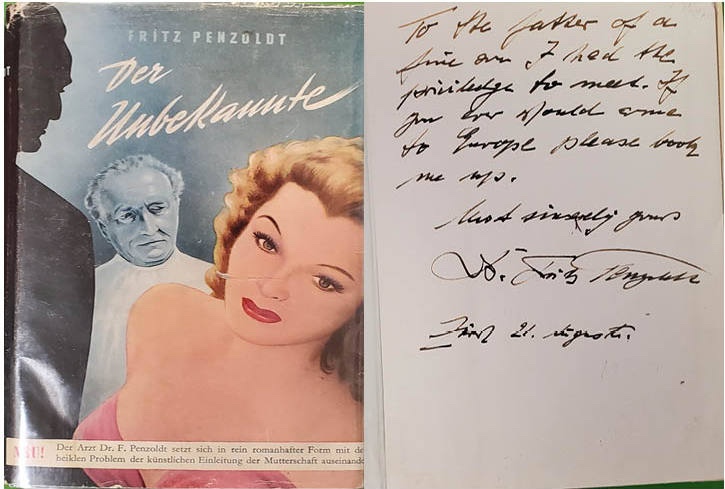 FRITZ PENZOLDT
Der
Unbekannte
NEU!
Der Arzt Dr. F. Penzoldt setzt sich in rein romanhafter Form mit de
heiklen Problem der künstlichen Einleitung der Mutterschaft auseinande
To the father of a
fine son I had the
priviledge to meet. If
you ever would come
to Europe please look
me up.
Most sincerely yours
Dr. Fritz Penzoldt
21. August.